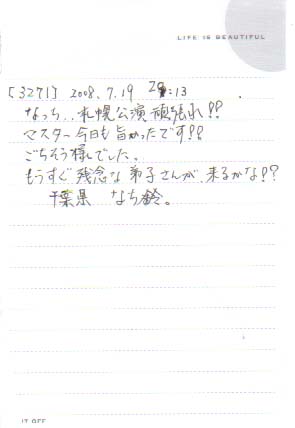 LIFE IS BEAUTIFUL
[3271] 2008.7.19 :13
なっち..札幌公演頑張れ!!
マスター今日も旨かったです!!
ごちそう様でした。
もうすぐ残念な弟子さんが、来るかな!?
千葉県 なち鈴。